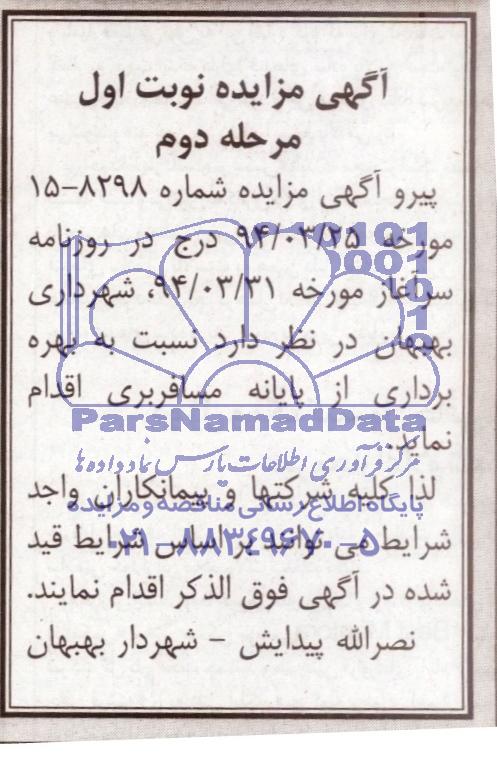 آگهی مزایده نوبت اول
مرحله دوم
پیرو آگهی مزایده شماره ۸۲۹۸-۱۵
مورخه ۹۴/۰۳/۲۵ درج در روزنامه
سرآغاز مورخه ۹۴/۰۳/۳۱، شهرداری
بهبهان در نظر دارد نسبت به بهره
برداری از پایانه مسافربری اقدام
ParsNamadData
نماید.
مرکز فرآوری اطلاعات پارس نماد داده ها
لذا کلیه شرکتها و پیمانکاران واجد
پایگاه اطلاع رسانی مناقصه و مزایده
شرایط می توانند بر اساس شرایط قید
۰۲۱-۸۸۳۴۹۶۷۰-۵
شده در آگهی فوق الذکر اقدام نمایند.
نصرالله پیدایش - شهردار بهبهان